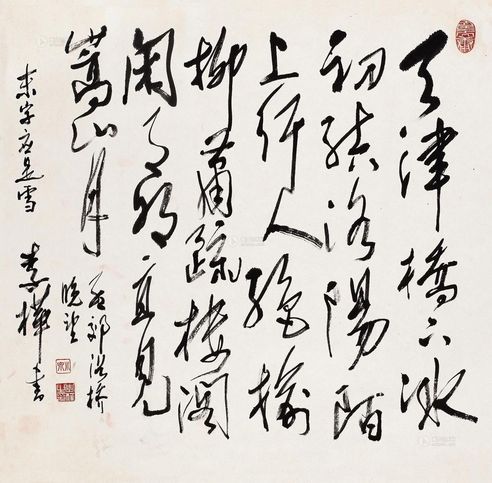 天津橋下冰
初結洛陽陌
上行人絕榆
柳蕭疏樓閣
閑月明直見
嵩山月
孟郊洛橋
晚望
末字应是雪
李樺書